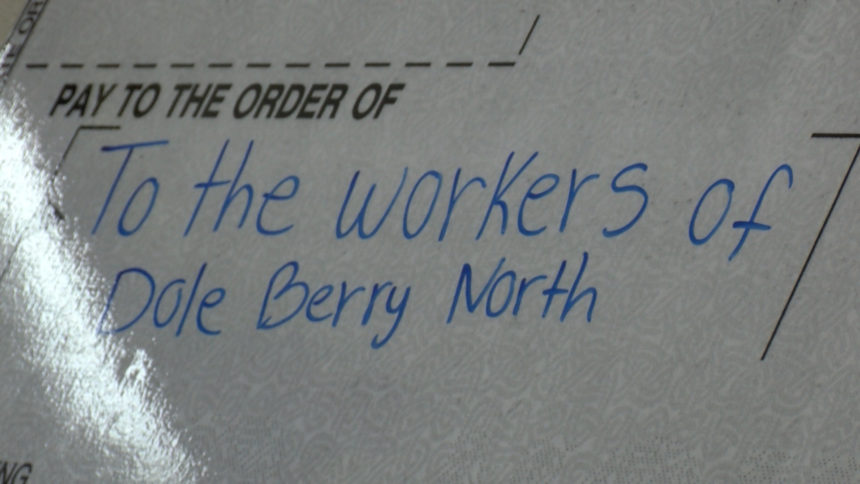 PAY TO THE ORDER OF
To the workers of
Dole Berry North